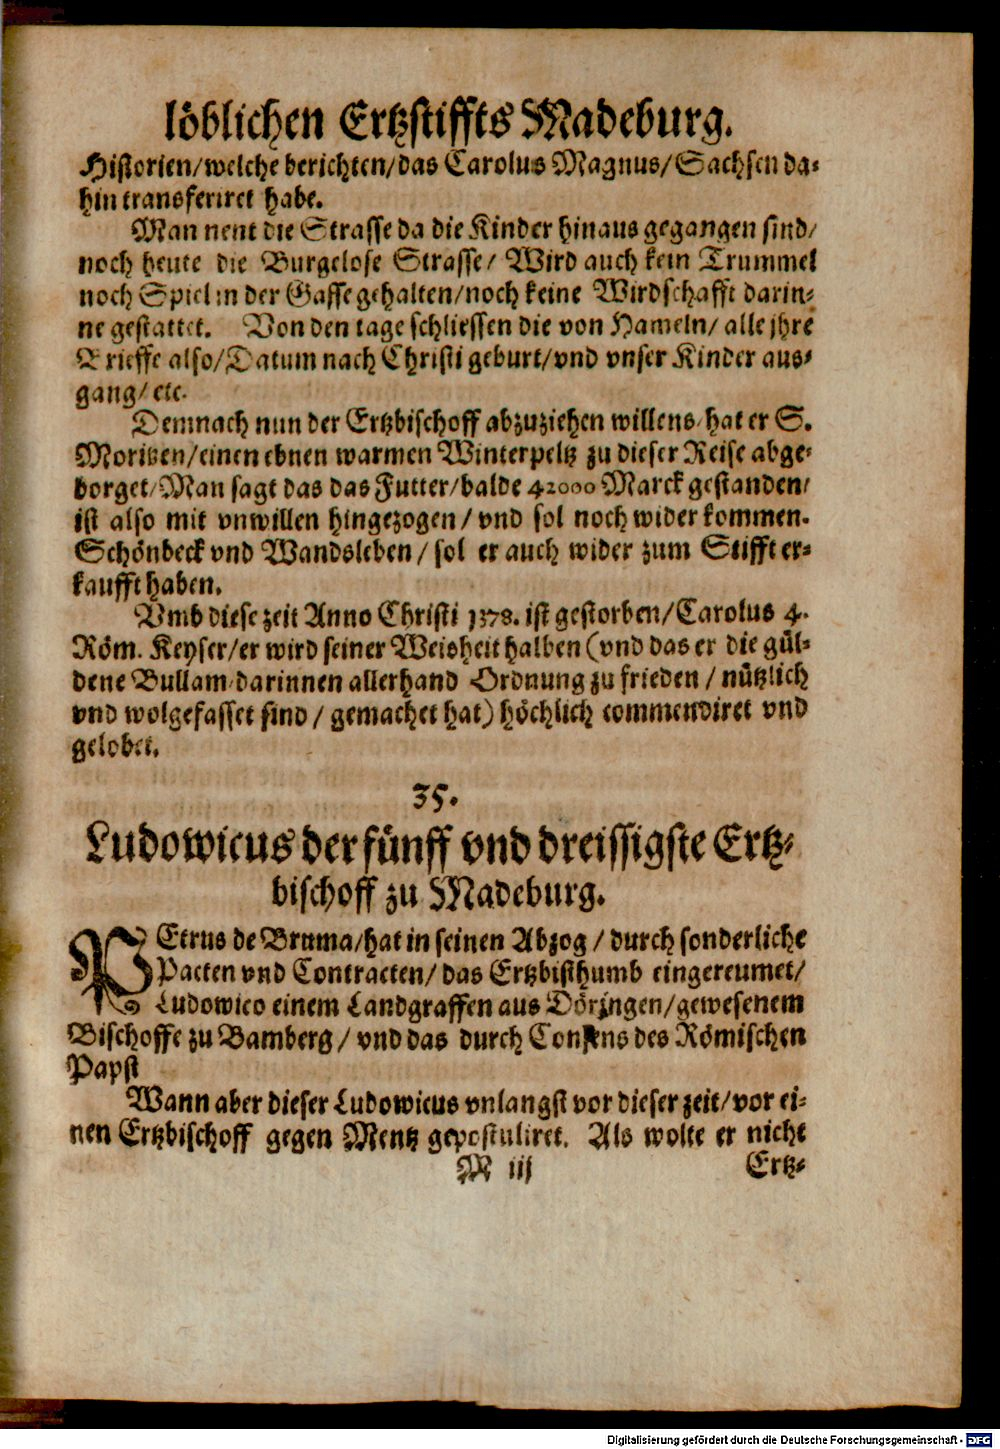 löblichen Ertzstiffts Madeburg.
Historien/welche berichten/das Carolus Magnus/Sachsen da-
hin transferiret habe.
Man nent die Strasse da die Kinder hinaus gegangen sind/
noch heute die Burgelose Strasse/ Wird auch kein Trummel
noch Spiel in der Gasse gehalten/noch keine Wirdschafft darin-
ne gestattet. Von den tage schliessen die von Hameln/ alle jhre
Brieffe also/Datum nach Christi geburt/vnd vnser Kinder aus-
gang/ etc.
Demnach nun der Ertzbischoff abzuziehen willens/hat er S.
Moritzen/einen ebnen warmen Winterpeltz zu dieser Reise abge-
borget/Man sagt das das Futter/balde 42000 Marck gestanden/
ist also mit vnwillen hingezogen/ vnd sol noch wider kommen.
Schönbeck vnd Wandsleben/ sol er auch wider zum Stifft er-
kaufft haben.
Vmb diese zeit Anno Christi 1378. ist gestorben/Carolus 4.
Röm. Keyser/er wird seiner Weisheit halben (vnd das er die gül-
dene Bullam/darinnen allerhand Ordnung zu frieden/ nützlich
vnd wolgefasset sind/ gemachet hat) höchlich commendiret vnd
gelobet.
35.
Ludowicus der fünff vnd dreissigste Ertz-
bischoff zu Madeburg.
PEtrus de Bruma/hat in seinen Abzog/ durch sonderliche
Pacten vnd Contracten/ das Ertzbisthumb eingereumet/
Ludowico einem Landgraffen aus Döringen/gewesenem
Bischoffe zu Bamberg/ vnd das durch Consens des Römischen
Papst
Wann aber dieser Ludowicus vnlangst vor dieser zeit/vor ei-
nen Ertzbischoff gegen Mentz gepostuliret. Als wolte er nicht
M iij Ertz-
Digitalisierung gefördert durch die Deutsche Forschungsgemeinschaft - DFG